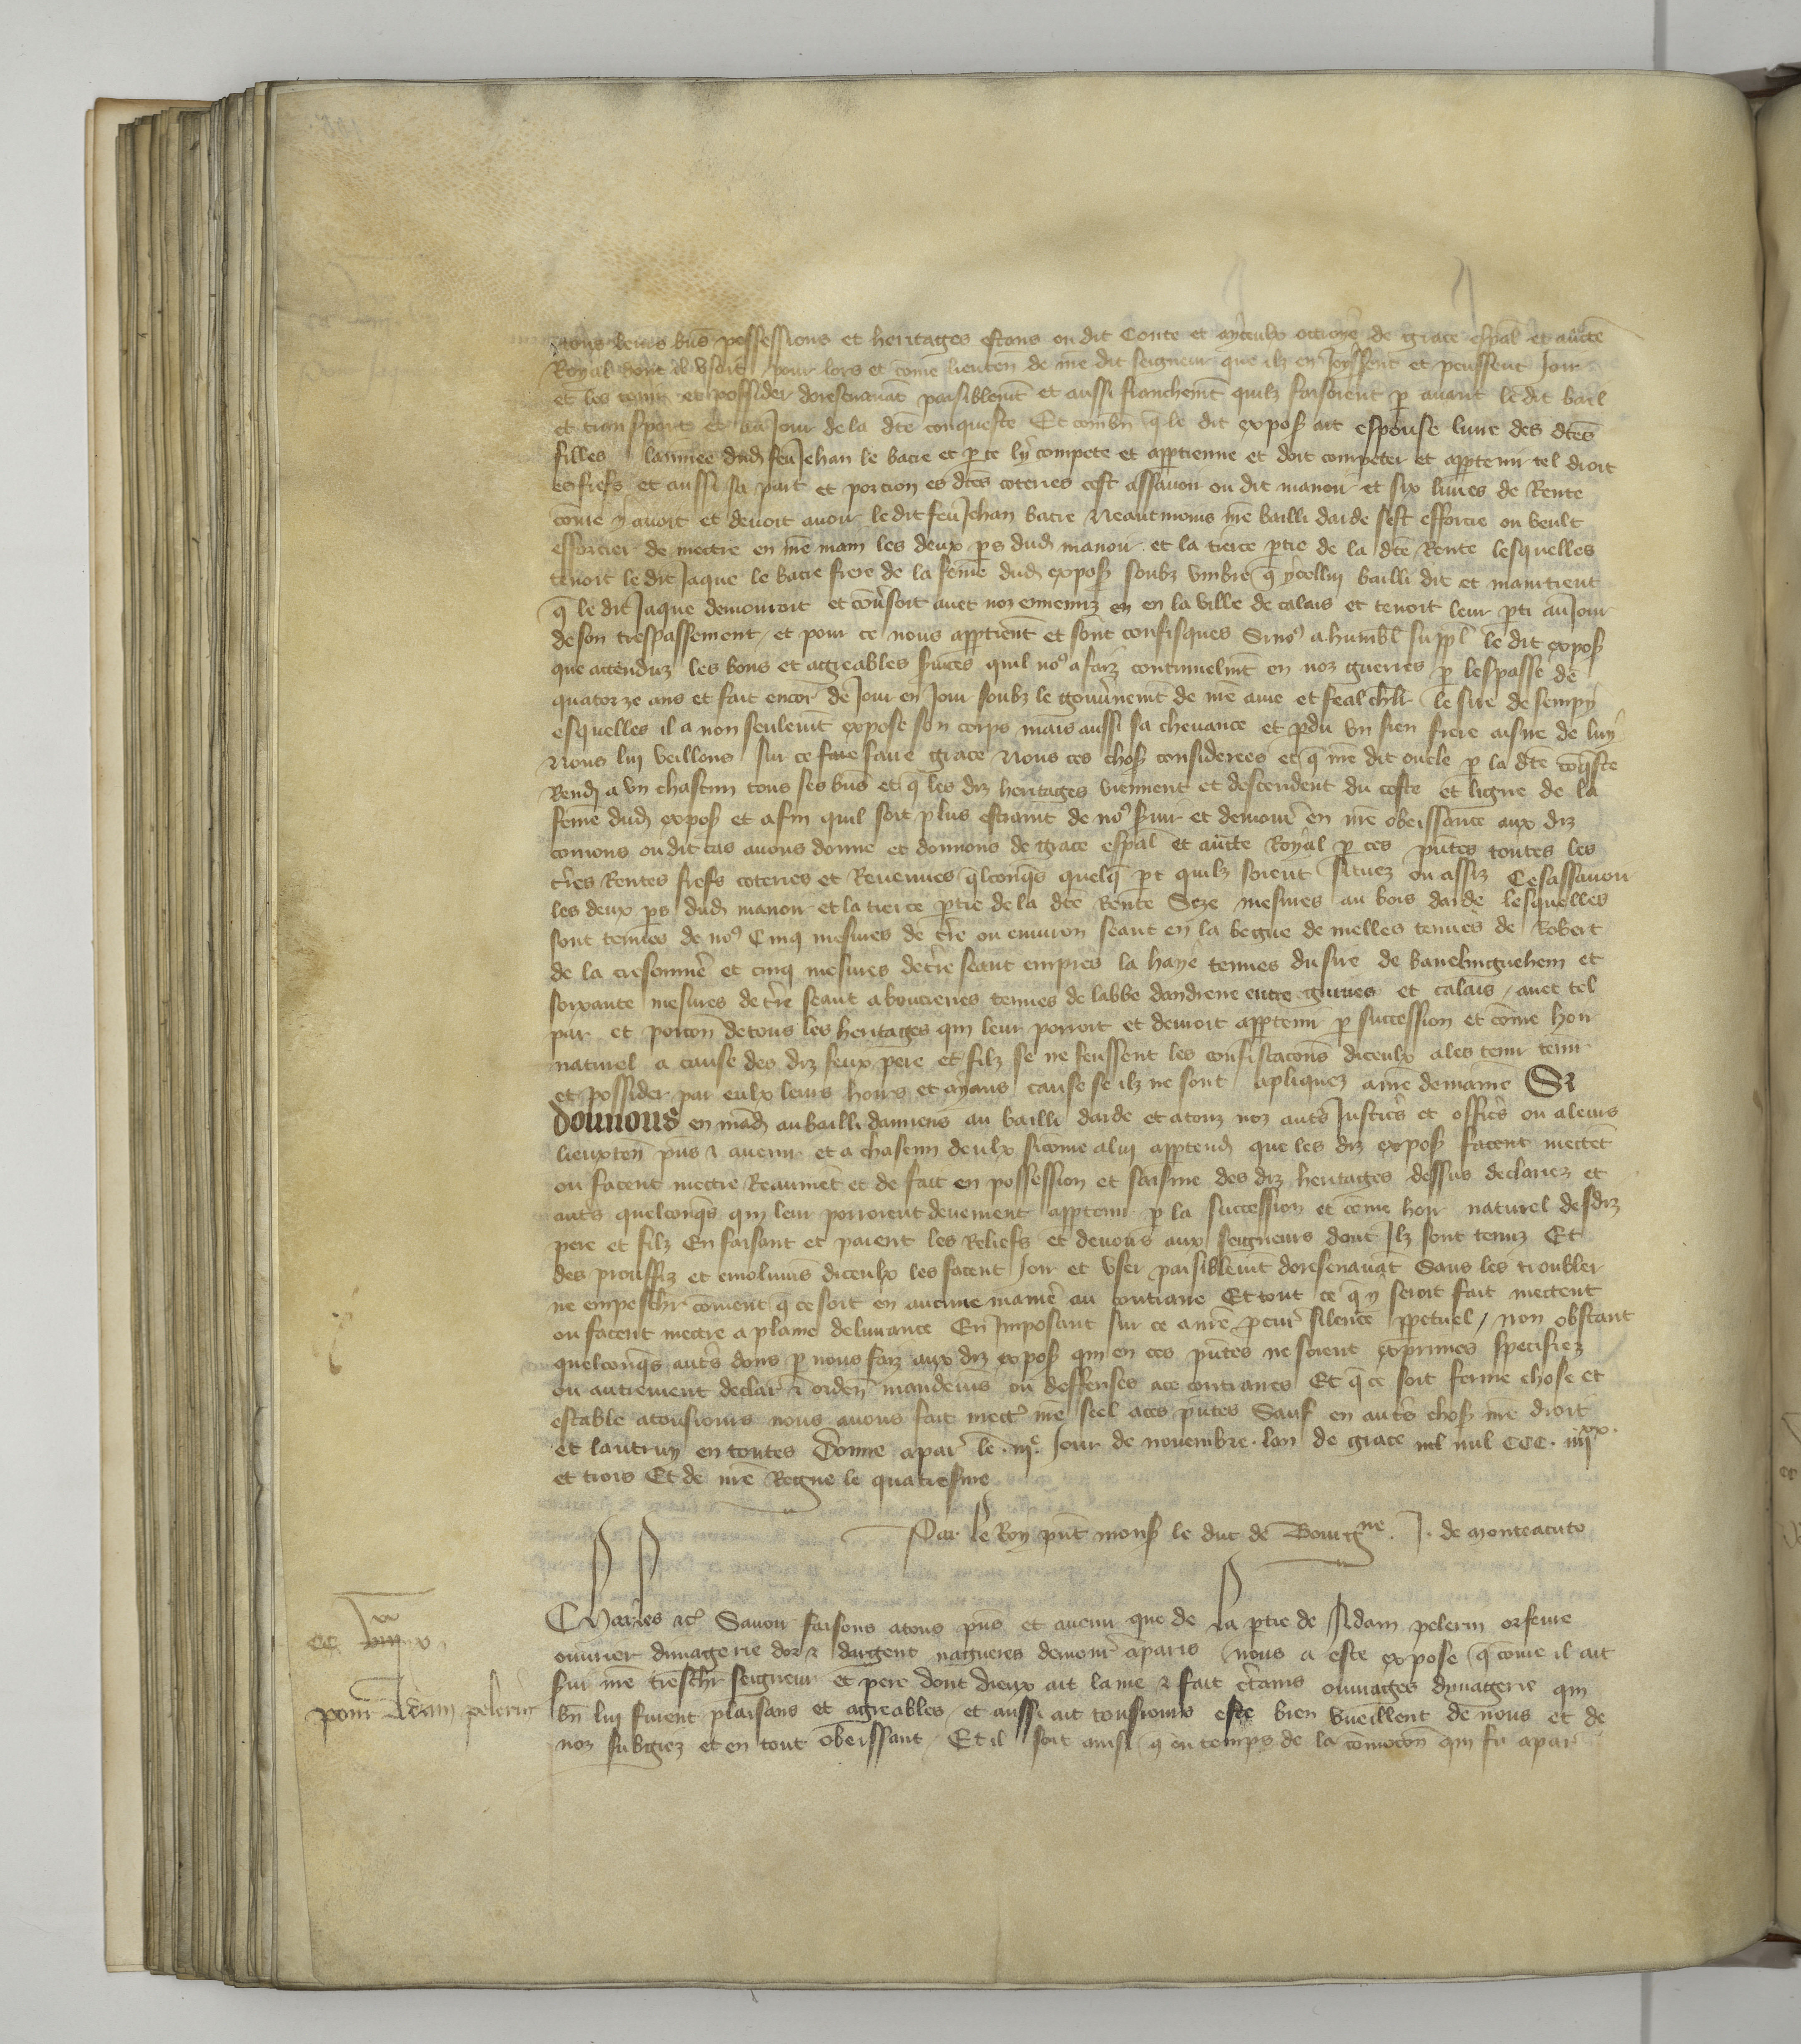 tous leurs biens possessions et heritages estans ou dit Conte et a yceulx ottroye de grace espal et aucte
Royal dont il usoit pour lors et come lieuten de nre dit seigneur que ilz en Joyssent et peussent Joir
et les tenir et possider doresenavat paisiblemt et aussi franchemt quilz faisoient p avant le dit bail
et transport et au Jour de la dte conqueste Et combn q le dit expos ait espouse lune des dtes
filles lainnee dud feu Jehan le bacre et p ce ly compete et apptienne et doit competer et apptenir tel droit
es fiefs et aussi sa part et porcion es dtes coteries cest assavoir ou dit manoir et six livres de Rente
come y avoit et devoit avoir le dit feu Jehan bacre Neantmoins nre bailli darde sest efforcie ou veult
efforcier de mectre en nre main les deux ps dud manoir et la tierce ptie de la dte Rente lesquelles
tenoit le dit Jaque le bacre frere de la feme dud expos soubz umbre q ycellui bailli dit et maintient
q le dit Jaque demouroit et covsoit avec noz ennemiz en en la ville de calais et tenoit leur pti au Jour
de son trespassement et pour ce nous apptienent et sont confisques Si nos a humbl suppl le dit expos
que attenduz les bons et agreables suices quil nos a faiz continuelmt en noz guerres p lespasse de
quatorze ans et fait encor de Jour en Jour soubz le gouvnemt de nre ame et feal chlr le sire de sempy
esquelles il a non seulemt expose son corps mais aussi sa chevance et pdu un sien frere aisne de luy
Nous lui veillons sur ce faire grace Nous ces chos considerees et q nre dit oncle p la dte coqste
Rendi a un chascun tous ses bns et q les diz heritages viennent et descendent du coste et ligne de la
feme dud expos et afin quil soit plus estraint de nos suir et demourer en nre obeissance aux diz
conions ou dit cas avons donne et donnons de grace espal et aucte Royal p ces pntes toutes les
tres Rentes fiefs coteries et Revenues qlconqs quelq pt quilz soient situez ou assiz Cest assavoir
les deux ps dud manoir et la tierce ptie de la dte Rente Seze mesures au bois darde lesquelles
sont tenues de nos Cinq mesures de tre ou environ seant en la begue de nielles tenues de Robert
de la cresonnie et cinq mesures de tre seant empres la haye tenues du sire de bavelinguehem et
soixante mesures de tre seant a boucieres tenues de labbe dandrene entre guines et calais avec tel
par et porcon de tous les heritages qui leur porroit et devroit apptenir p succession et come hoir
naturel a cause des diz feux pere et filz se ne feussent les confiscacons diceulx a les tenir tenir
et possider par eulx leurs hoirs et ayans cause se ilz ne sont apliquez a nre demaine Si
donnons en mad au bailli damiens au bailli darde et a touz noz auts Justics et offics ou a leurs
lieuxten pns & avenir et a chascun deulx sicome a lui apptend que les diz expos facent mectet
ou facent mectre Reaumet et de fait en possession et saisine des diz heritages dessus declariez et
auts quelconqs qui leur porroient deuement apptenir p la succession et come hoir naturel desdiz
pere et filz En faisant et paient les Reliefs et devoirs aux seigneurs dont Ilz sont tenuz Et
des prouffiz et emolumes diceulx les facent Joir et user paisiblemt doresenavat Sans les troubler
ne empeschr coment q ce soit en aucune manie au contraire Et tout ce q y seroit fait mectent
ou facent mectre a plaine delivrance En Imposant sur ce a nre pcur silence ppetuel non obstant
quelconqs auts dons p nous faiz aux diz expos qui en ces pntes ne soient exprimes specifiez
ou autrement declar & orden mandems ou deffenses a ce contraires Et q ce soit ferme chose et
estable a tousiours nous avons fait mectr nre seel a ces pntes Sauf en auts chos nre droit
et lautruy en toutes Donne a par le iije Jour de novembre lan de grace mil CCC iiijxx
et trois Et de nre Regne le quatriesme
Par le Roy pnt mons le duc de Bourgne J. de monteacuto
CC iiijxx v
pour Adam pelerin
Charles etc Savoir faisons a tous pns et avenir que de la ptie de Adam pelerin orfevre
ouvrier dymagerie dor & dargent nagueres demour a paris nous a este expose q come il ait
sui nre treschr seigneur et pere dont dieux ait lame & fait ctains ouvrages dymagerie qui
bn lui furent plaisans et agreables et aussi ait tousiours este bien vueillent de nous et de
noz subgiez et en tout obeissant Et il soit ainsi q ou temps de la comocon qui fu a par